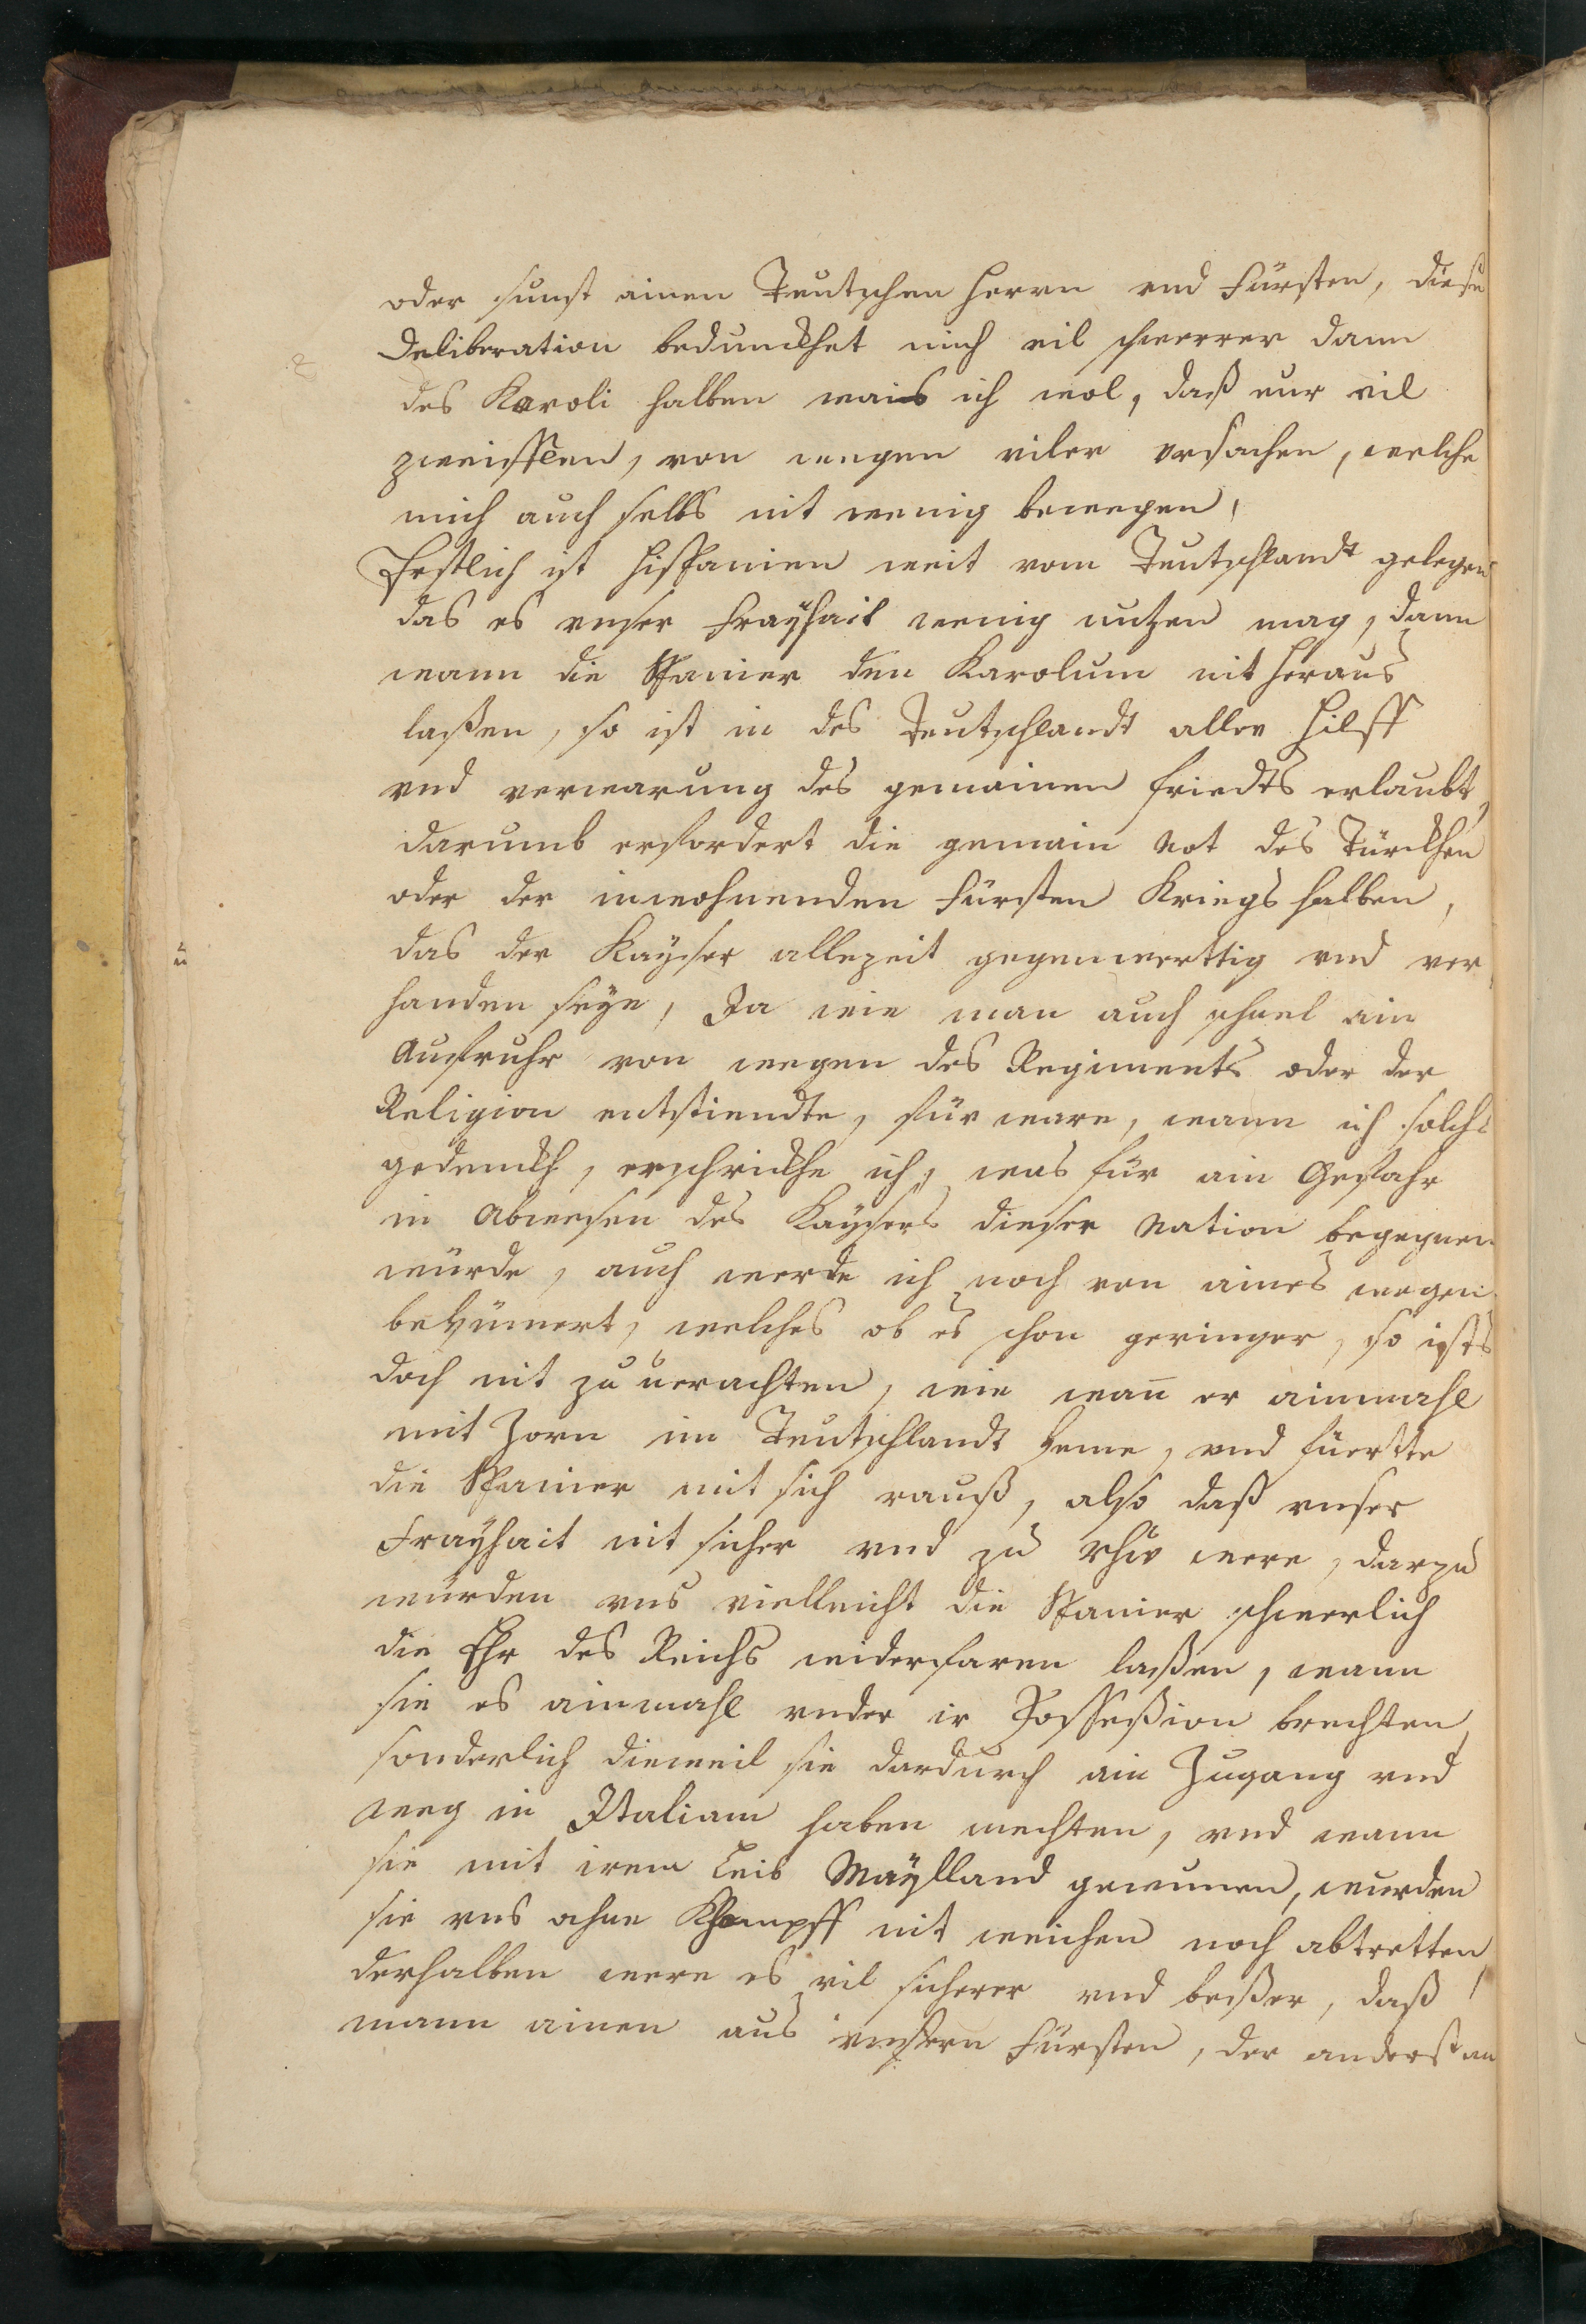 oder sunst ainen Teutschen Herrn vnd Fürsten, diese
Deliberation bedunckhet mich vil schwerrer dann
des Karoli halben wais ich wol, daß nur vil
zweifflen, von wegen viler vrsachen, welche
mich auch selbs nit wenig bewegen,
Erstlich ist Hispanien weit vom Teutschlandt gelegen
das es vnser Frayhait wenig nutzen mag, dann
wann die Spanier den Karolum nit heraus
laßen, so ist in des Teutschlandt aller Hilff
vnd verwarung des gemainen friedts erlaubt,
darumb erfordert die gemain not des Türckhen
oder der inwohnenden Fürsten Kriegs halben,
das der Kayser allezeit gegenwerttig vnd ver
handen seye, Ja wie man auch schnel ain
Aufruhr von wegen des Regiments oder der
Religion entstiendte, für ware, wann ich solchs
gedenckh, erschrickhe ich, was für ain Gefahr
in Abwesen des Kaysers dieser Nation begegnen
würde, auch werde ich noch von aines wegen
bekümert, welches ob es schon geringer, so ists
doch nit zu uerachten, wie wan̄ er ainmahl
mit Zorn im Teutschlandt keme, vnd füertte
die Spanier mit sich rauß, also daß vnser
Frayhait nit sicher vnd zu rhue were, darzu
würden vns vielleicht die Spanier schwerlich
die Ehr des Reichs widerfaren laßen, wann
sie es ainmahl vnder ir Possesßion brechten,
sonderlich dieweil sie dardurch ain Zugang vnd
weg in Italiam haben mechten, vnd wann
sie mit irem Leib Maylland gewunnen, wurden
sie vns ohne Khampff nit weichen noch abtretten,
derhalben were es vil sicherer vnd beßer, daß
mann ainen aus vnsern Fürsten, der anderst an